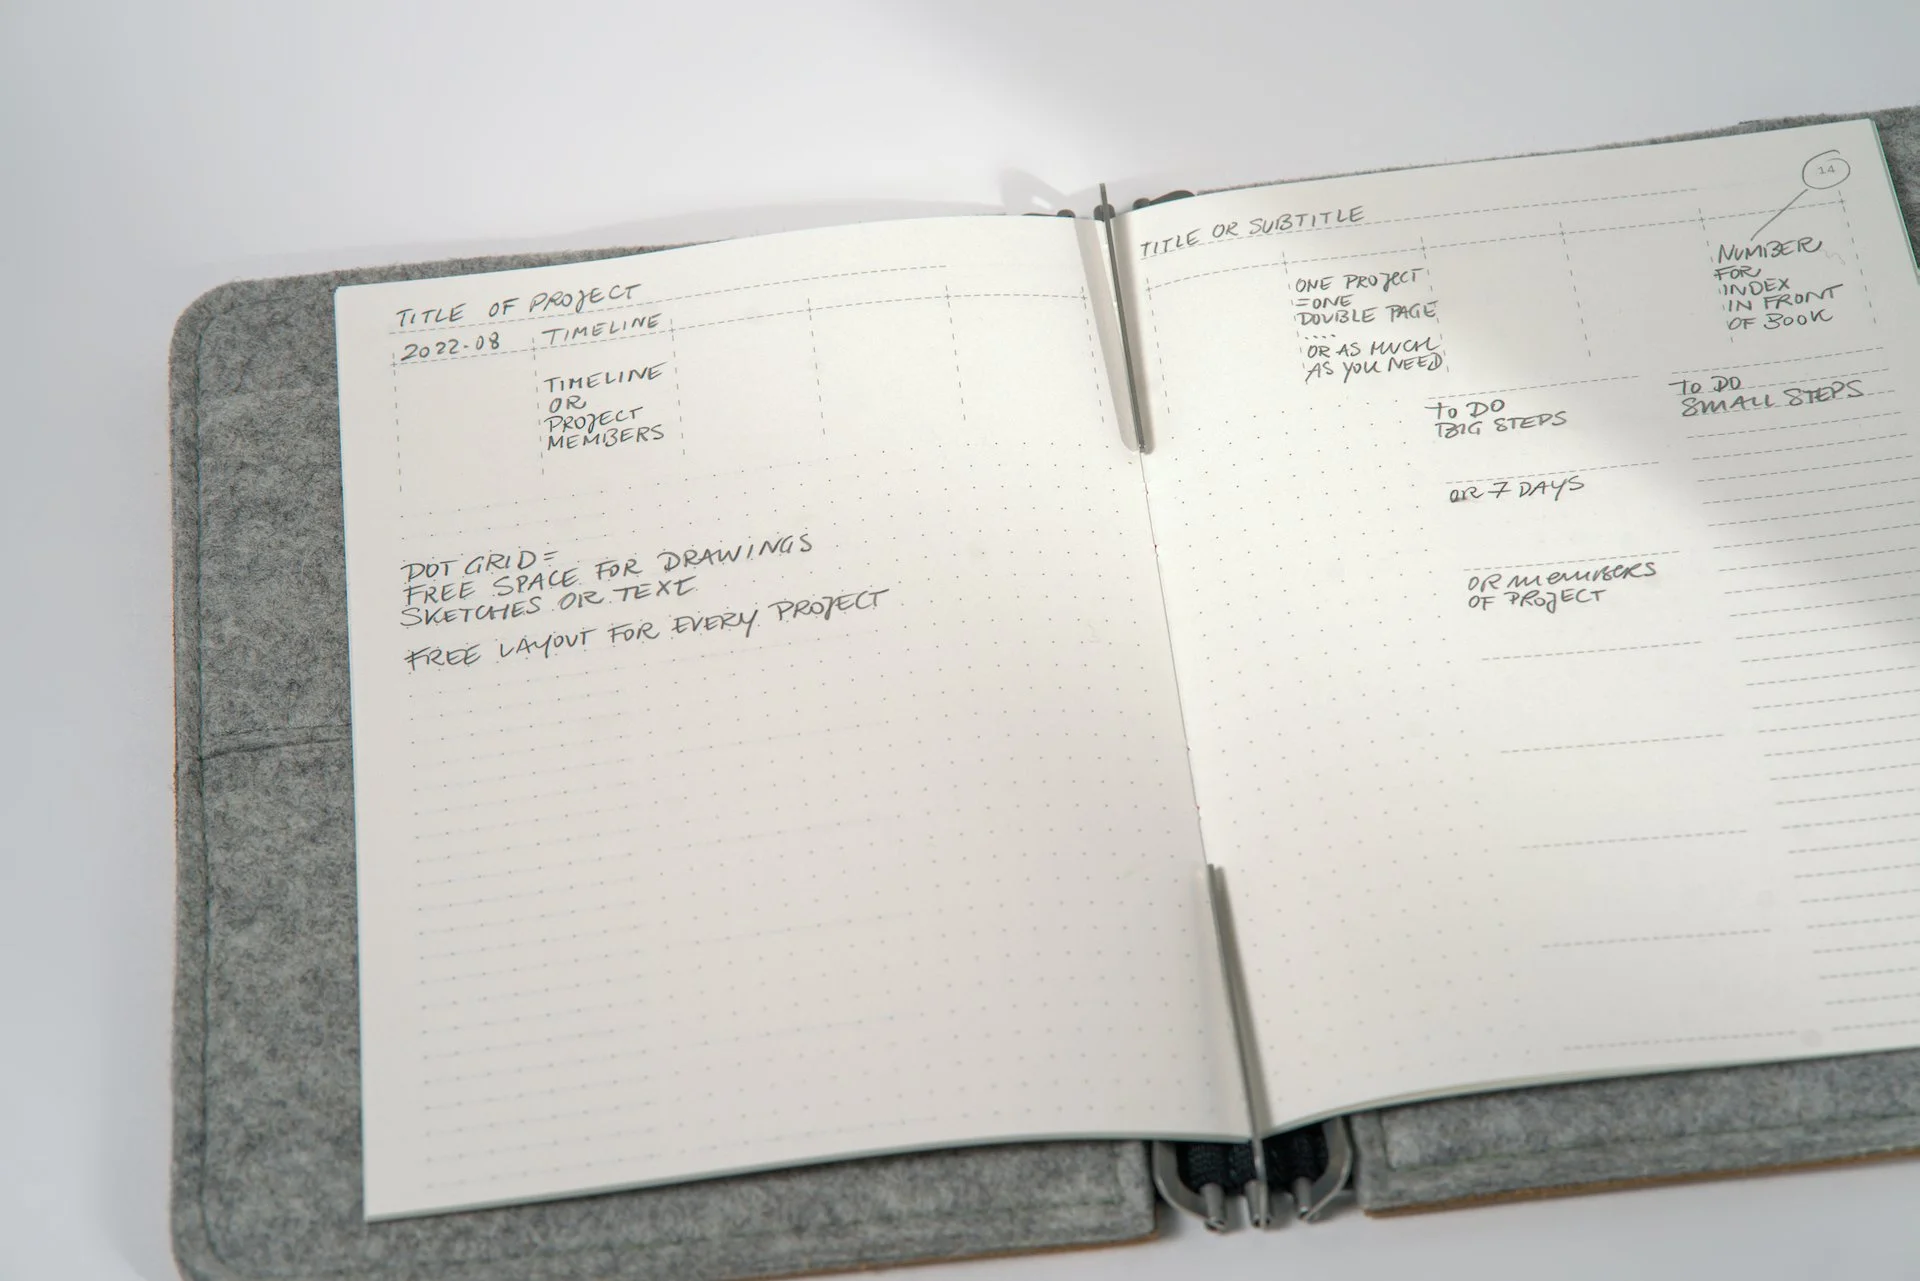 TITLE OF PROJECT
2022-08 TIMELINE
TIMELINE
OR
PROJECT
MEMBERS
DOT GRID =
FREE SPACE FOR DRAWINGS
SKETCHES OR TEXT
FREE LAYOUT FOR EVERY PROJECT
14
TITLE OR SUBTITLE
ONE PROJECT
=ONE
DOUBLE PAGE
....
OR AS MUCH
AS YOU NEED
NUMBER
FOR
INDEX
IN FRONT
OF BOOK
TO DO
BIG STEPS
OR 7 DAYS
OR MEMBERS
OF PROJECT
TO DO
SMALL STEPS